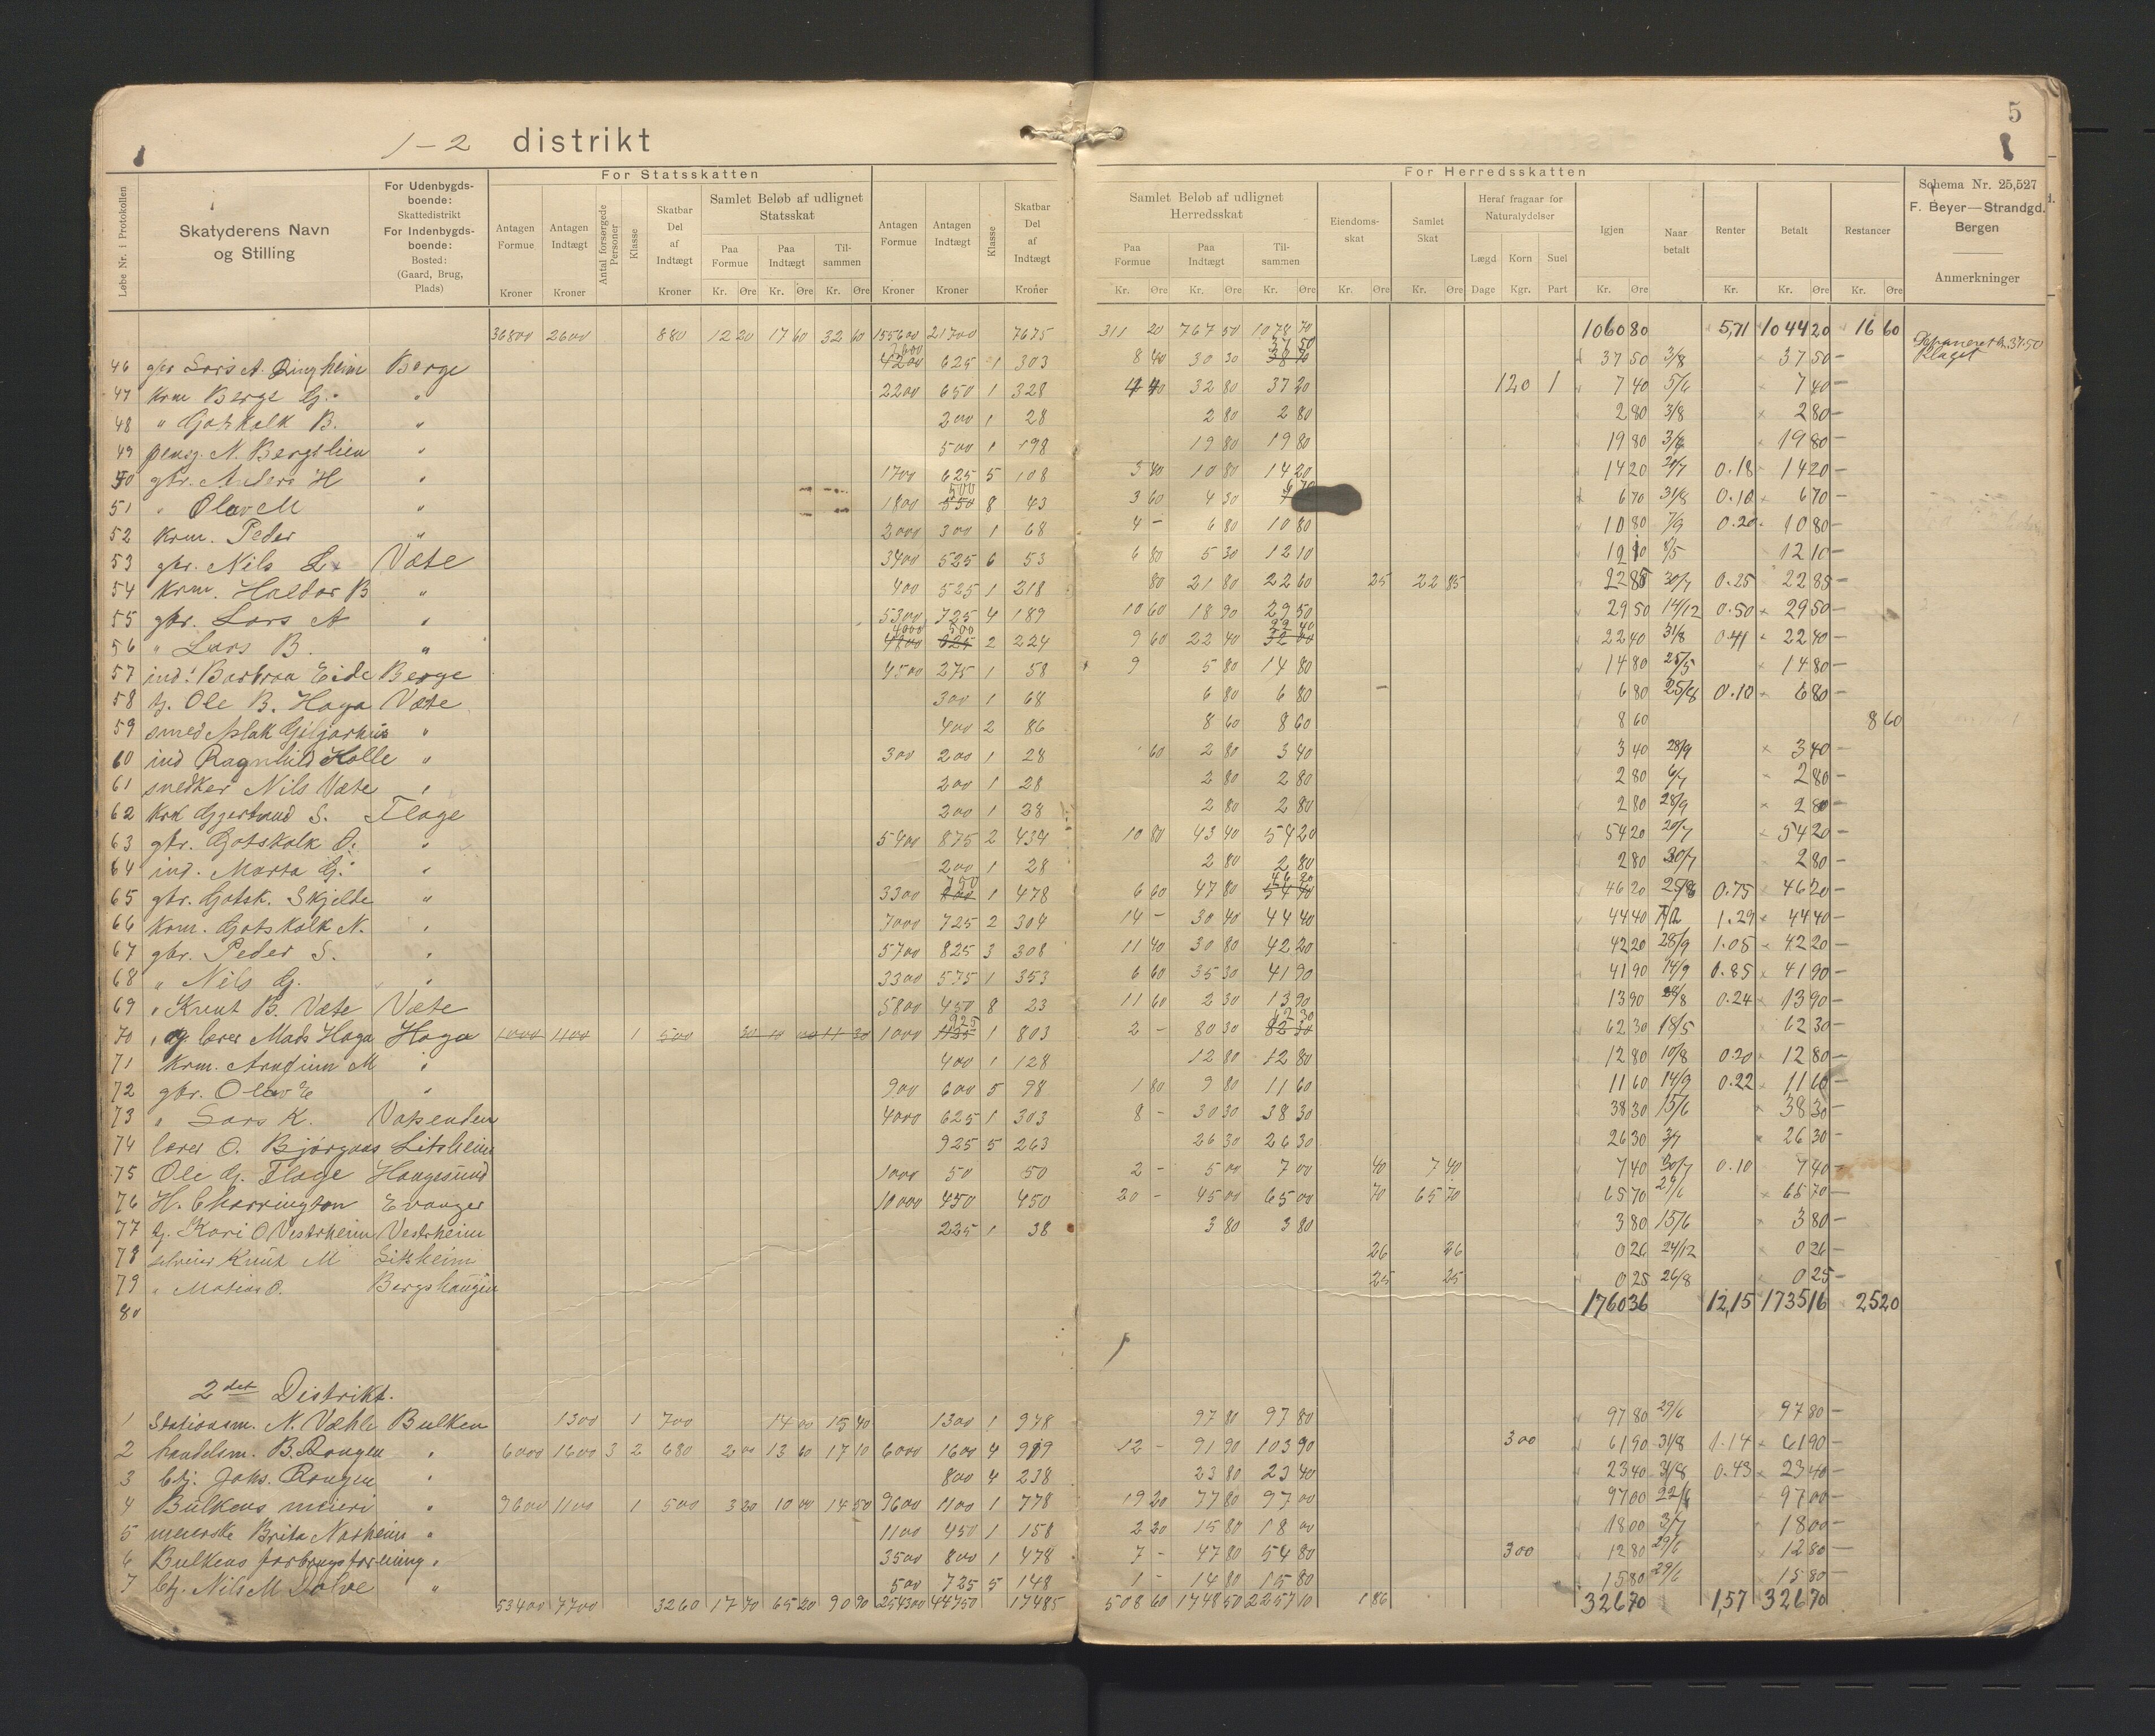 5
1-2 distrikt
For Statsskatten
For Herredsskatten
Løbe Nr. i Protokollen
Skatyderens Navn og Stilling
For Udenbygdsboende: Skattedistrikt For Indenbygdsboende: Bosted: (Gaard, Brug, Plads)
Antagen Formue Kroner
Antagen Indtægt Kroner
Antal forsørgede Personer
Klasse
Skatbar Del af Indtægt Kroner
Samlet Beløb af udlignet Statsskat
Paa Formue Kr. Øre
Paa Indtægt Kr. Øre
Tilsammen Kr. Øre
Antagen Formue Kroner
Antagen Indtægt Kroner
Klasse
Skatbar Del af Indtægt Kroner
Samlet Beløb af udlignet Herredsskat
Paa Formue Kr. Øre
Paa Indtægt Kr. Øre
Tilsammen Kr. Øre
Eiendomsskat Kr. Øre
Samlet Skat Kr. Øre
Heraf fragaar for Naturalydelser
Lægd Dage
Korn Kgr.
Suel Part
Igjen Kr. Øre
Naar betalt
Renter Kr.
Betalt Kr. Øre
Restancer Kr. Øre
Schema Nr. 25,527
F. Beyer—Strandgd. Bergen
Anmerkninger
36800 2600 880 12 20 17 60 32 60 155600 21700 7675 311 20 767 50 1078 70 1060 80 5,71 1044 20 16 60
46 gbr Lars A. Ringheim Berge 3600 4200 625 1 303 8 40 30 30 37 50 37 50 3/8 37 50 Klaget
47 krm Berge G. " 2200 650 1 328 4 40 32 80 37 20 120 1 7 40 5/6 7 40
48 " Gotskalk B. " 200 1 28 2 80 2 80 2 80 3/8 2 80
49 pensj. N. Bergslien " 500 1 198 19 80 19 80 19 80 19 80
50 gbr. Anders H " 1700 625 5 108 3 40 10 80 14 20 14 20 20/7 0.18 14 20
51 " Olav M " 1800 500 550 8 43 3 60 4 30 6 70 6 70 31/8 0.10 6 70
52 krm. Peder " 2000 300 1 68 4 - 6 80 10 80 10 80 7/9 0.20 10 80
53 gbr. Nils L. Væte 3400 525 6 53 6 80 5 30 12 10 12 10 12 10
54 krm. Haldor B " 400 525 1 218 80 21 80 22 60 25 22 85 22 85 30/7 0.25 22 85
55 gbr. Lars A " 5300 725 4 189 10 60 18 90 29 50 29 50 14/12 0.50 29 50
56 " Lars B. " 4000 4800 500 625 2 224 9 60 22 40 22 40 32 00 22 40 31/8 0.41 22 40
57 ind. Barbraa Eide Berge 4500 275 1 58 9 5 80 14 80 14 80 25/5 14 80
58 tj. Ole B. Haga Væte 300 1 68 6 80 6 80 6 80 25/8 0.10 6 80
59 smed Aslak Giljarhus " 400 2 86 8 60 8 60 8 60 8 60
60 ind Ragnhild Holle " 300 200 1 28 60 2 80 3 40 3 40 28/9 3 40
61 snedker Nils Væte " 200 1 28 2 80 2 80 2 80 6/7 2 80
62 Gjertrud S. Flage 200 1 28 2 80 2 80 2 80 28/9 2 80
63 gbr. Gotskalk O. " 5400 875 2 434 10 80 43 40 54 20 54 20 20/7 54 20
64 ind. Marta G. " 200 1 28 2 80 2 80 2 80 30/7 2 80
65 gbr. Gotsk. Skjelde " 3300 750 800 1 478 6 60 47 80 46 20 54 40 46 20 25/8 0.75 46 20
66 krm. Gotskalk N. " 7000 725 2 304 14 - 30 40 44 40 44 40 1.29 44 40
67 gbr. Peder S. " 5700 825 3 308 11 40 30 80 42 20 42 20 28/9 1.05 42 20
68 " Nils G. " 3300 575 1 353 6 60 35 30 41 90 41 90 14/9 0.85 41 90
69 " Knut B. Væte Væte 5800 450 8 23 11 60 2 30 13 90 13 90 0.24 13 90
70 " og lærer Mads Haga Haga 1000 1100 1 500 1000 925 1125 1 803 2 - 80 30 62 30 82 30 62 30 18/5 62 30
71 krm. Arngrim M " 400 1 128 12 80 12 80 12 80 10/8 0.20 12 80
72 gbr. Olav E " 900 600 5 98 1 80 9 80 11 60 11 60 14/9 0.22 11 60
73 " Lars K. Vatsenden 4000 625 1 303 8 - 30 30 38 30 38 30 15/6 38 30
74 lærer O. Bjørgaas Litsheim 925 5 263 26 30 26 30 26 30 3/7 26 30
75 Ole G. Flage Haugesund 1000 50 50 2 - 5 00 7 00 40 7 40 7 40 30/7 0.10 7 40
76 H. Charrington Evanger 10000 450 450 20 - 45 00 65 00 70 65 70 65 70 29/6 65 70
77 tj. Kari O Vestrheim Vestrheim 225 1 38 3 80 3 80 3 80 15/6 3 80
78 Knut M Litsheim 26 26 0 26 24/12 0 26
79 " Matias O. Bergshaugen 25 25 0 25 26/8 0 25
80 1760 36 12,15 1735 16 25 20
2det Distrikt.
1 Stationsm. N. Væhle Bulken 1300 1 700 14 00 15 40 1300 1 978 97 80 97 80 97 80 29/6 97 80
2 handelsm. B. Rongen " 6000 1600 3 2 680 2 00 13 60 17 10 6000 1600 4 919 12 - 91 90 103 90 300 61 90 31/8 1.14 61 90
3 btj. Joks. Rongen " 800 4 238 23 80 23 40 23 40 31/8 0.43 23 40
4 Bulkens meieri " 9600 1100 1 500 3 20 10 00 14 50 9600 1100 1 778 19 20 77 80 97 00 97 00 22/6 97 00
5 meierske Brita Norheim " 1100 450 1 158 2 20 15 80 18 00 18 00 3/7 18 00
6 Bulkens forbrugsforening " 3500 800 1 478 7 - 47 80 54 80 300 12 80 29/6 12 80
7 btj. Nils M Dolve " 500 725 5 148 1 - 14 80 15 80 15 80 29/6 15 80
53400 7700 3260 17 70 65 20 90 90 254300 44750 17485 508 60 1748 50 2257 10 1 86 326 70 1,57 326 70